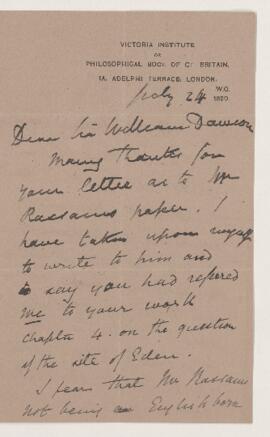 VICTORIA INSTITUTE
OR
PHILOSOPHICAL SOCY. OF GT. BRITAIN.
1A. ADELPHI TERRACE. LONDON.
W.C.
July 24 1890.
Dear Sir William Dawson
Many thanks for
your letter as to Mr
Rassam's paper. I
have taken upon myself
to write to him and
to say you had referred
me to your work
chapter 4. on the question
of the site of Eden.
I fear that Mr Rassam
not being an English born